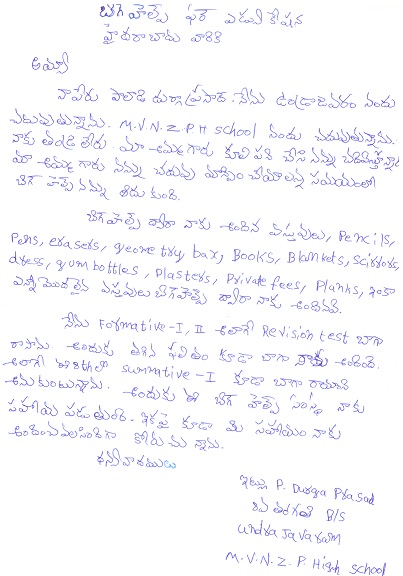 బిగ్ హెల్ప్ ఫర్ ఎడ్యుకేషన్
హైదరాబాదు వారికి
అమ్మా
నా పేరు పాలాడి దుర్గాప్రసాద్. నేను ఉండ్రాజవరం నందు
చదువుతున్నాను. M.V.N.Z.P.H School నందు చదువుతున్నాను.
నాకు తండ్రి లేరు. మా అమ్మగారు కూలి పని చేసి నన్ను చదివిస్తోన్నారు
మా అమ్మ గారు నన్ను చదువు మాన్పిం చేయాలన్న సమయంలో
బిగ్ హెల్ప్ నన్ను ఆదు కుంది.
బిగ్ హెల్ప్ ద్వారా నాకు అందిన వస్తువులు, Pencils,
Pens, erasers, geometry, bax, Books, Blankets, Scissors,
dress, gum bottles, Plasters, Private fees, Planks, ఇంకా
ఎన్నో మొదలైన వస్తువులు బిగ్ హెల్ప్ ద్వారా నాకు అందినవి.
నేను Formative-I, II అలాగే Revision test బాగా
రాసాను. అందుకు తగిన ఫలితం కూడా బాగా నాకు అందింది.
అలాగే ఈ 8thలో Summative-I కూడా బాగా రాయాలి
అనుకుంటున్నాను. అందుకు ఈ బిగ్ హెల్ప్ సంస్థ నాకు
సహాయ పడుతుంది. ఇకపై కూడా మీ సహాయం నాకు
అందించవలసిందిగా కోరుచు న్నాను.
ధన్యవాదములు
ఇట్లు P. Durga Prasad
8వ తరగతి B/S
undrajavaram
M.V.N.Z.P. High School